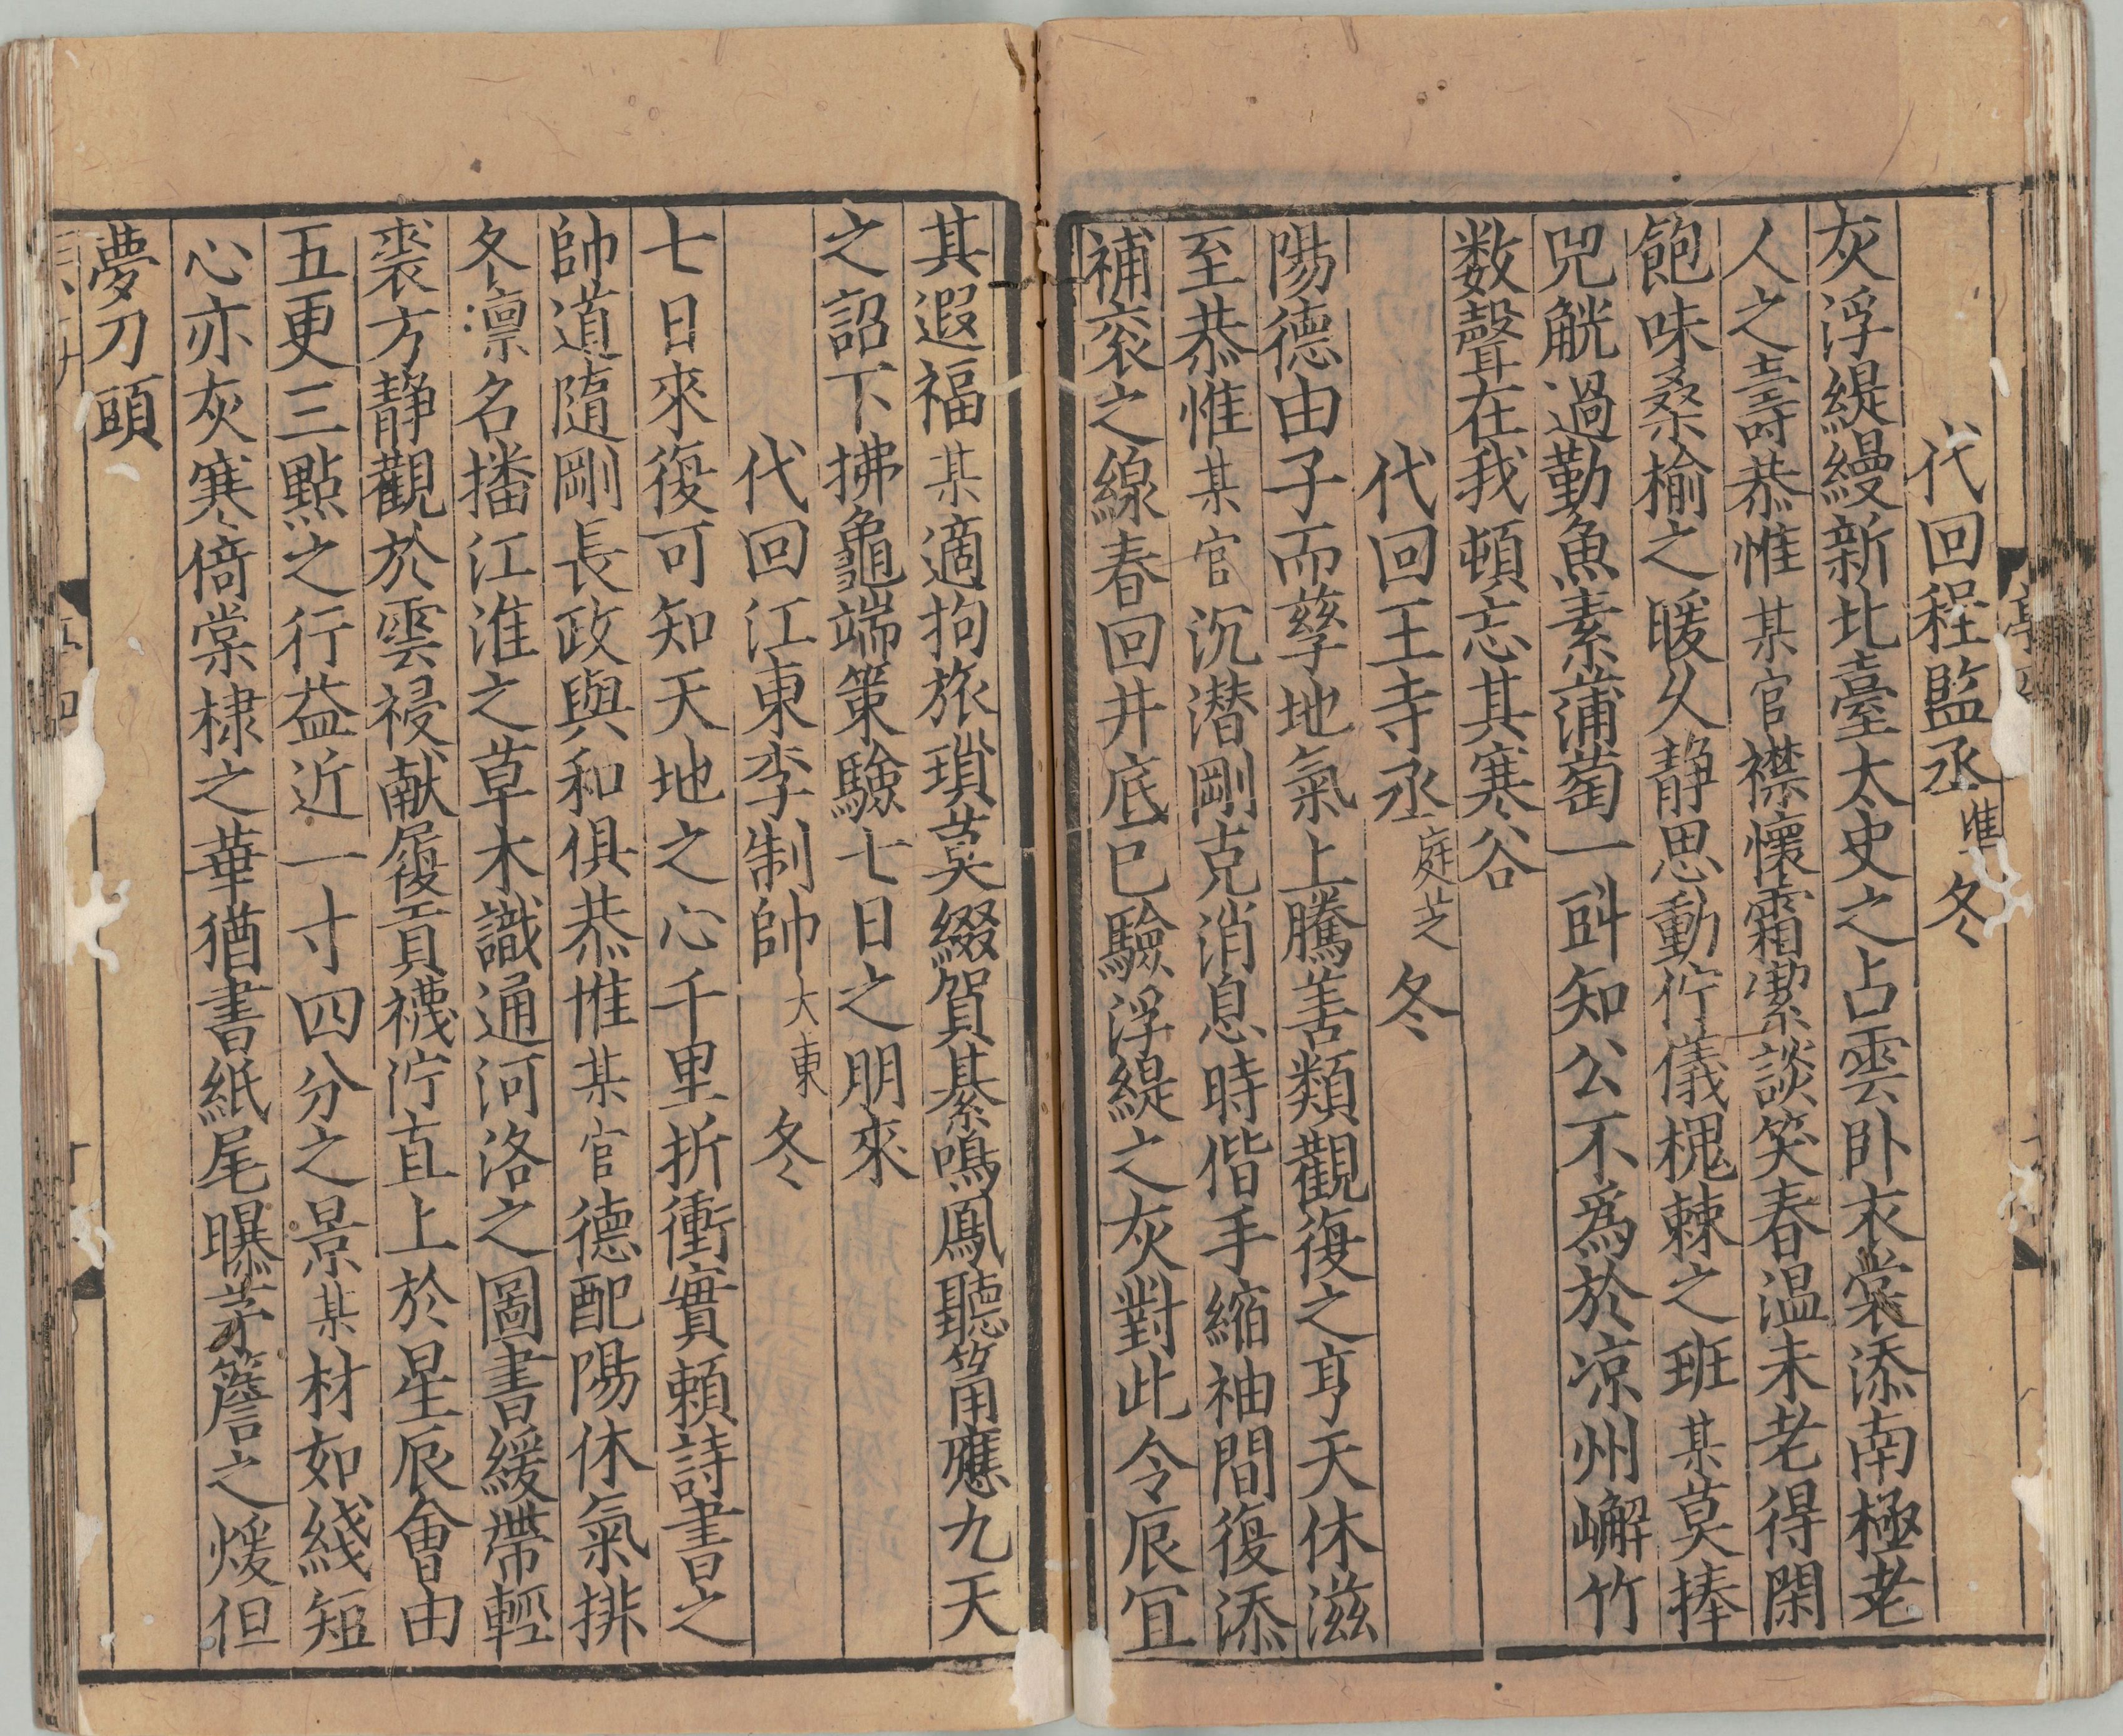 代回程監丞 準 冬
灰浮緹縵新北臺太史之占雲卧衣裳添南極老
人之壽恭惟某官襟懷霜潔談笑春温未老得閑
飽味桑榆之暖久靜思動佇儀槐棘之班某莫捧
兕觥過勤魚素蒲萄一㪷知公不爲於凉州嶰竹
数聲在我頓忘其寒谷
代回王寺丞 庭芝 冬
陽德由子而孳地氣上騰善類觀復之亨天休滋
至恭惟某官沉潜剛克消息時偕手縮袖間復添
補衮之線春回井底已驗浮緹之灰對此令辰宜
其遐福某適拘旅瑣莫綴賀綦鳴鳳聽筩應九天
之詔下拂龜端策驗七日之朋來
代回江東李制帥 大東 冬
七日來復可知天地之心千里折衝實賴詩書之
帥道隨剛長政與和俱恭惟某官德配陽休氣排
冬凛名播江淮之草木識通河洛之圖書緩帶輕
裘方靜觀於雲祲献履貢襪佇直上於星辰會由
五更三點之行益近一寸四分之景某材如綫短
心亦灰寒倚棠棣之華猶書紙尾曝茅簷之煖但
夢刀頭